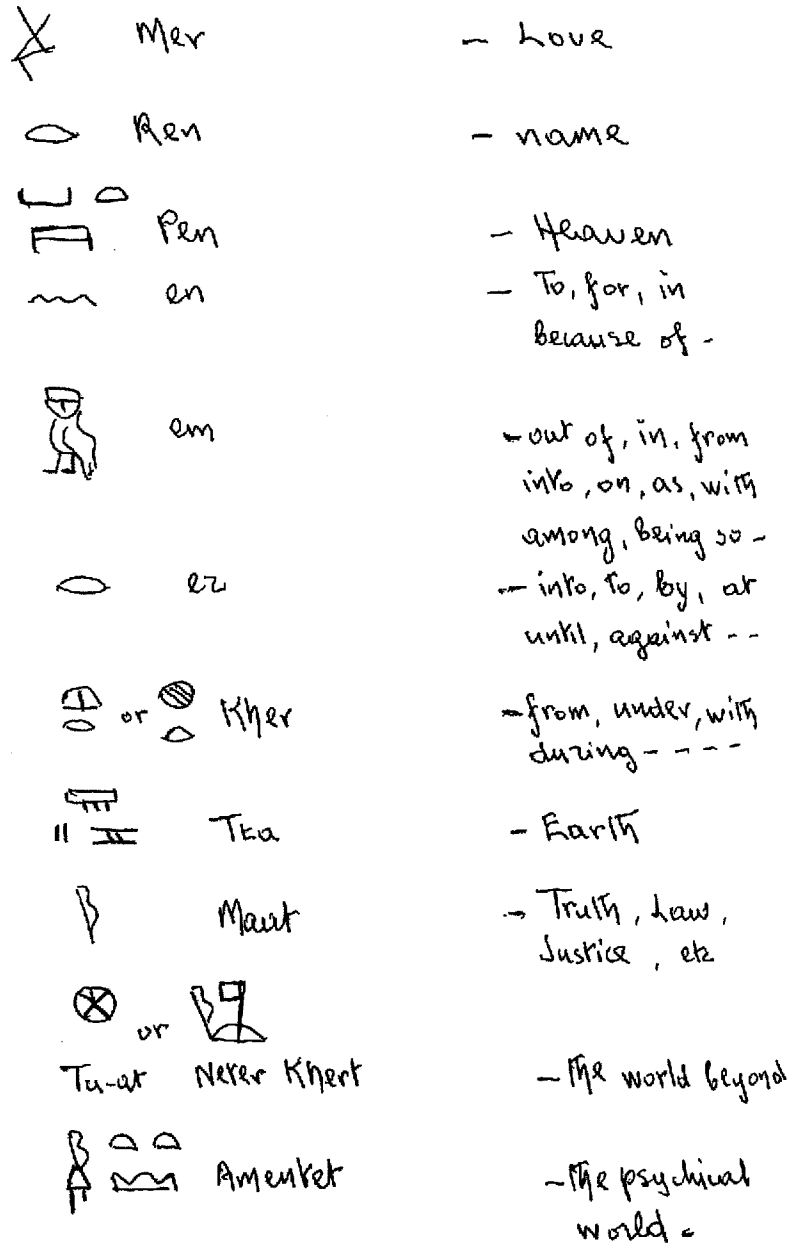 Mer – Love
Ren – name
Pen – Heaven
en – To, for, in
because of -
em – out of, in, from
into, on, as, with
among, being so -
er – into, to, by, at
until, against --
or Kher – from, under, with
during ----
Tta – Earth
Maut – Truth, Law,
Justice, etc
or
Tu-at Neter Khert – The world beyond
Amentet – The psychical
world.